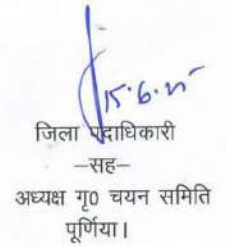 15.6.25
जिला पदाधिकारी
–सह–
अध्यक्ष गृ0 चयन समिति
पूर्णिया।